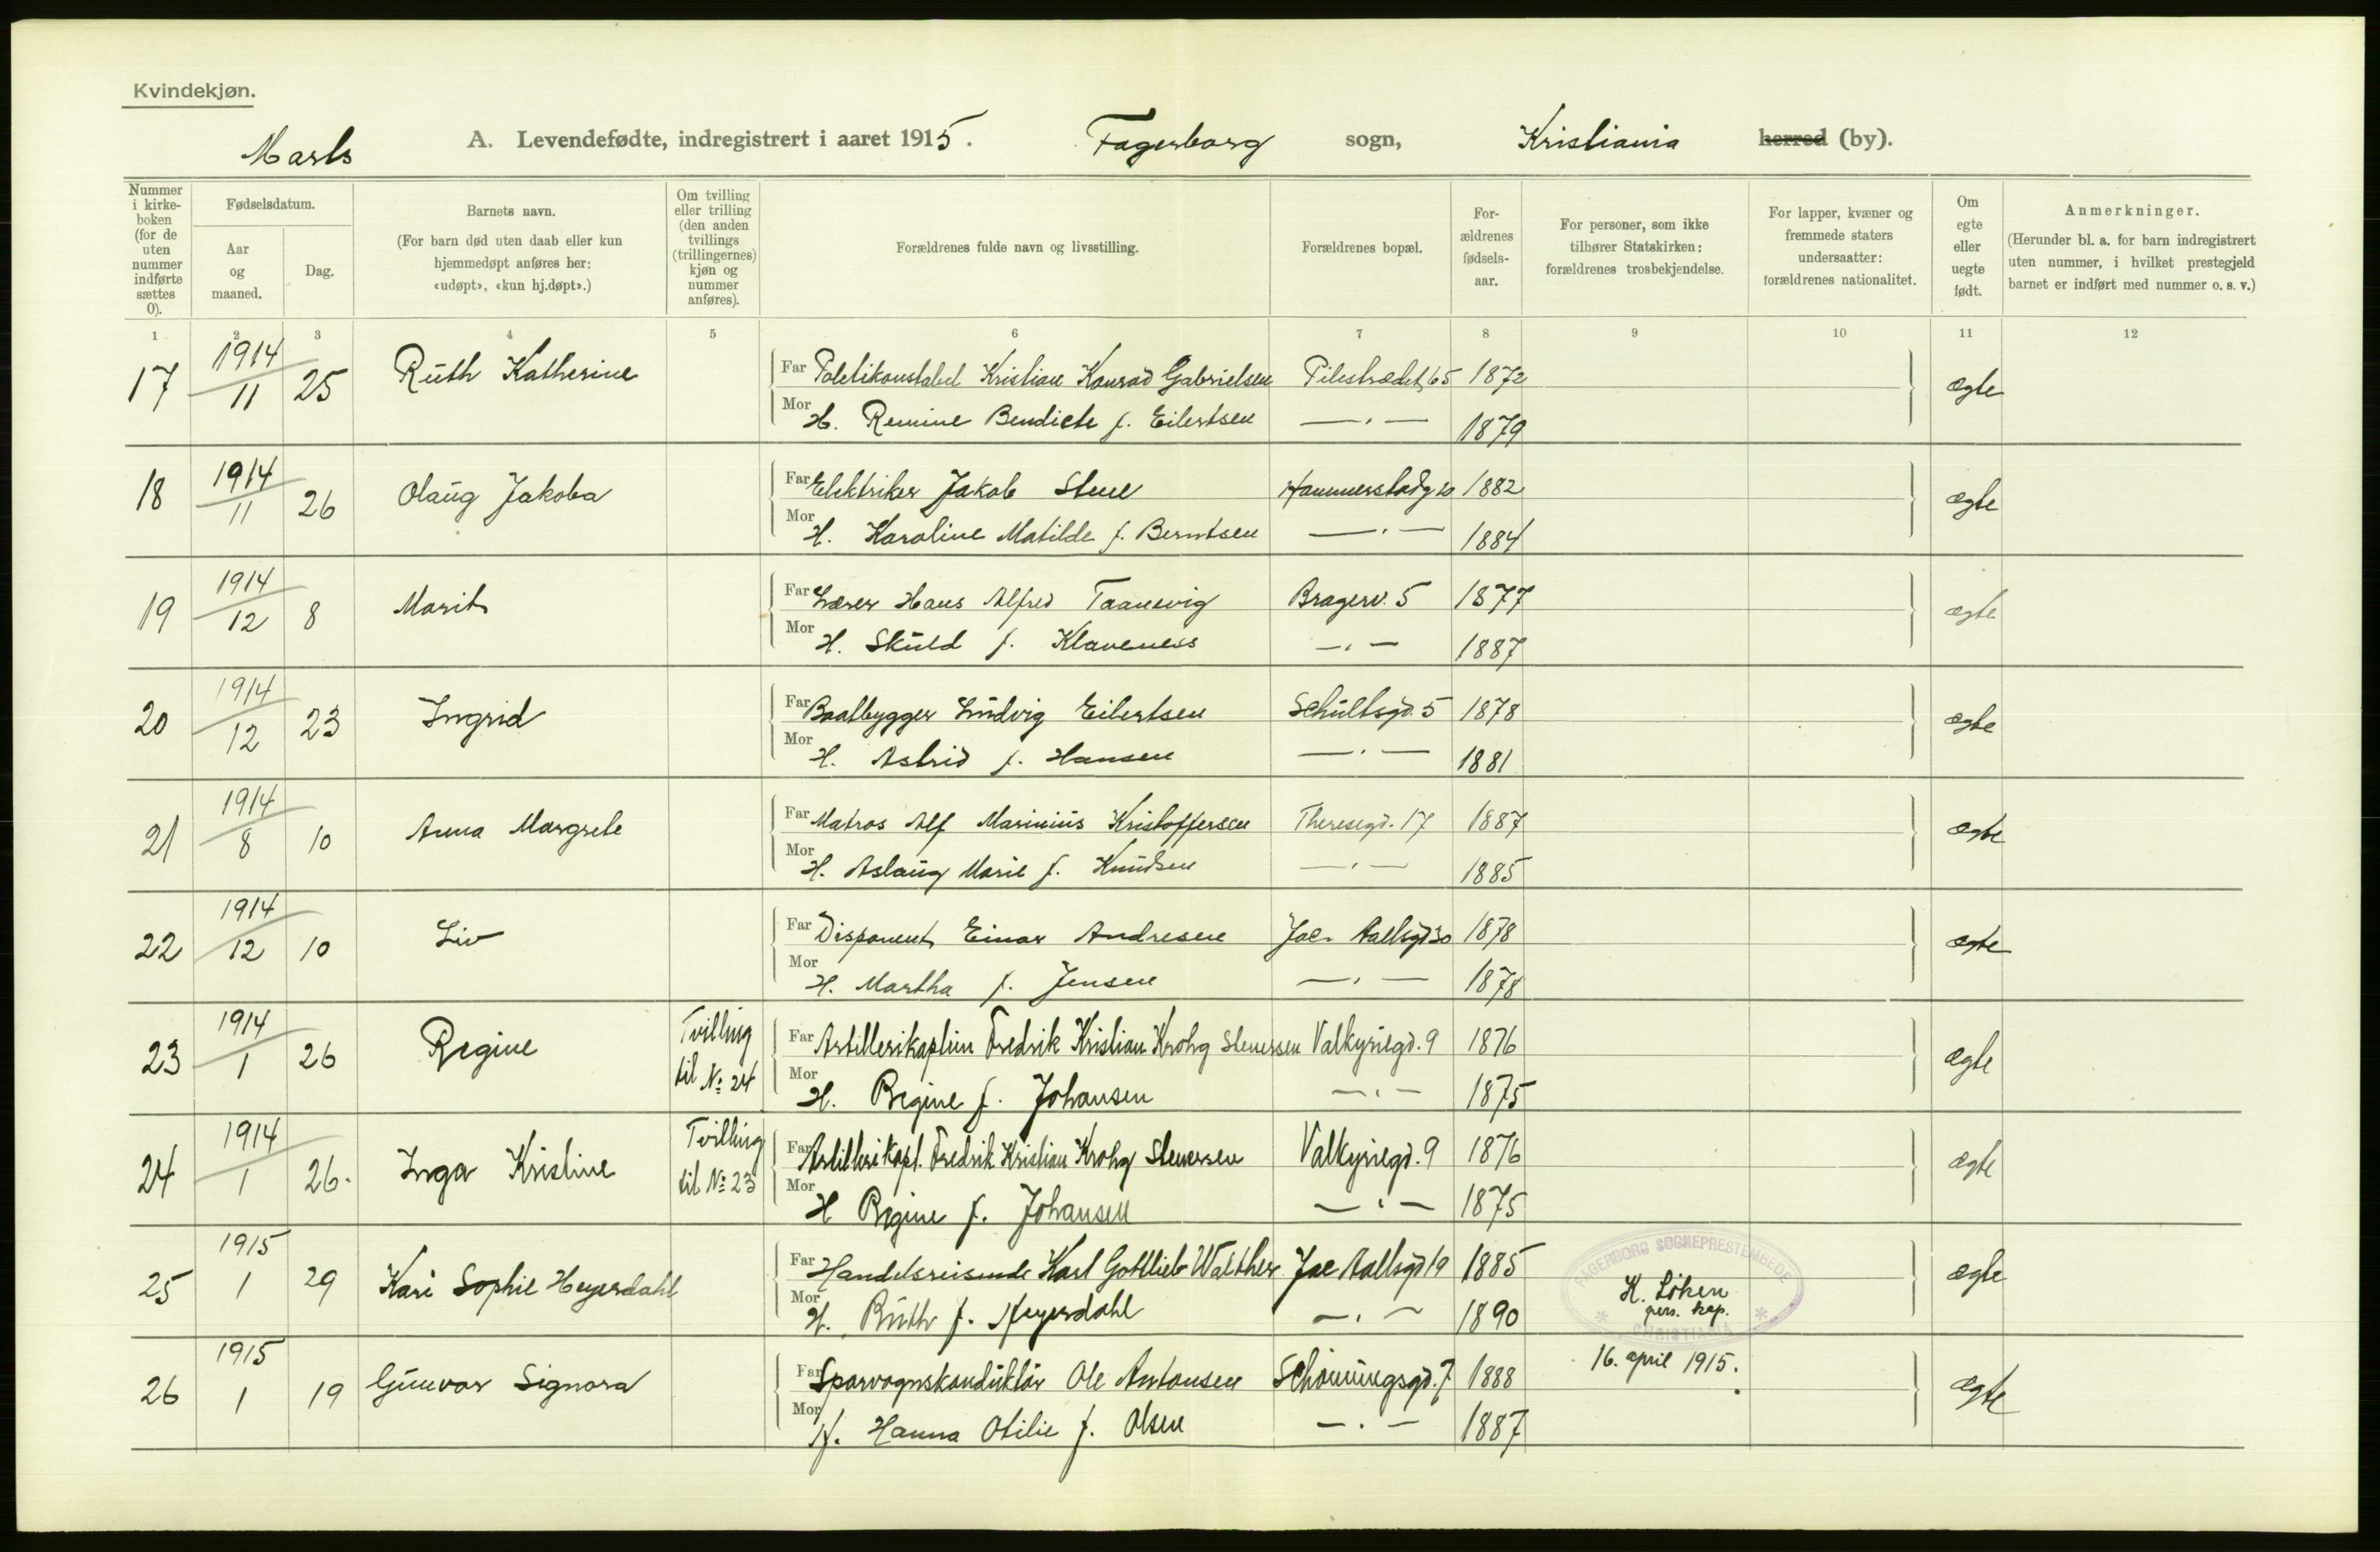 Kvindekjøn.
Marts A. Levendefødte, indregistrert i aaret 1915. Fagerborg sogn, Kristiania herred (by).
Nummer i kirke-boken (for de uten nummer indførte sættes 0).
Fødselsdatum.
Aar og maaned.
Dag.
Barnets navn.
(For barn død uten daab eller kun hjemmedøpt anføres her: «udøpt», «kun hj.døpt».)
Om tvilling eller trilling (den anden tvillings (trillingernes) kjøn og nummer anføres).
Forældrenes fulde navn og livsstilling.
Forældrenes bopæl.
For-ældrenes fødsels-aar.
For personer, som ikke tilhører Statskirken: forældrenes trosbekjendelse.
For lapper, kvæner og fremmede staters undersaatter: forældrenes nationalitet.
Om egte eller uegte født.
Anmerkninger.
(Herunder bl. a. for barn indregistrert uten nummer, i hvilket prestegjeld barnet er indført med nummer o. s. v.)
1 2 3 4 5 6 7 8 9 10 11 12
17 1914/11 25 Ruth Katherine Far Politikonstabel Kristian Konrad Gabrielsen Pilestrædet 65 1872 ægte
Mor H. Remine Bendicte f. Eilertsen —·— 1879
18 1914/11 26 Olaug Jakoba Far Elektriker Jakob Stene Hammerstadg 20 1882 ægte
Mor H. Karoline Matilde f. Berntsen —·— 1884
19 1914/12 8 Marit Far Lærer Hans Alfred Taanevig Bragerv. 5 1877 ægte
Mor H. Skuld f. Klaveness —·— 1887
20 1914/12 23 Ingrid Far Baatbygger Ludvig Eilertsen Schultsgd. 5 1878 ægte
Mor H. Astrid f. Hansen —·— 1881
21 1914/8 10 Anna Margrete Far Matros Alf Marinius Kristoffersen Theresegd. 17 1887 ægte
Mor H. Aslaug Marie f. Knudsen —·— 1885
22 1914/12 10 Liv Far Disponent Einar Andresen Jac. Aallsgd 30 1878 ægte
Mor H. Martha f. Jensen —·— 1878
23 1914/1 26 Regine Tvilling til № 24 Far Artillerikaptein Fredrik Kristian Krohg Stenersen Valkyriegd. 9 1876 ægte
Mor H. Regine f. Johansen —·— 1875
24 1914/1 26. Inga Kristine Tvilling til № 23 Far Artillerikapt. Fredrik Kristian Krohg Stenersen Valkyriegd. 9 1876 ægte
Mor H Regine f. Johansen —·— 1875
25 1915 1 29 Kari Sophie Heyerdahl Far Handelsreisende Karl Gottlieb Walther Jac Aallsgd 19 1885 ægte
Mor H. Ruth f. Heyerdahl —·— 1890
FAGERBORG SOGNEPRESTEMBEDE
K. Løken
pers. kap.
* CHRISTIANIA *
16. april 1915.
26 1915 1 19 Gunvor Signora Far Sporvognskonduktør Ole Antonsen Schøningsgd. 7 1888 ægte
Mor H. Hanna Otilie f. Olsen —·— 1887